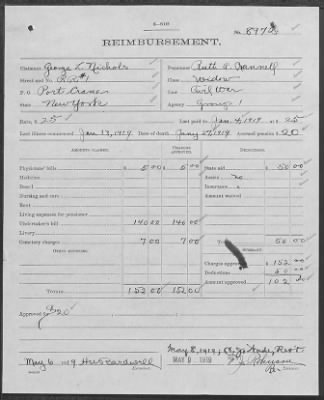 3-810
REIMBURSEMENT.
Claimant George L. Nichols
Street and No.
P. O. Port Crane
State New York
Pensioner Ruth P.
Class Widow
Civil War
Agency Group 1
Rate, $ 25
Jan. 4, 1919 @ 25
Last illness commenced Jan 13, 1919 Date of death, Jany 27, 1919 Accrued pension $ 20
AMOUNTS CLAIMED.
CHARGES APPROVED.
Physicians' bills $ 5 00 $ 5 00
Medicine
Board
Nursing and care
Rent
Living expenses for pensioner
Undertaker's bill 140 00 140 00
Livery
Cemetery charges 7 00 7 00
OTHER EXPENSES.
Totals 152 00 152 00
State aid $ 50 00
Assets no
Insurance
Amount waived
Total 50 00
SUMMARY.
Charges approved $ 152 00
Deductions 50 00
Amount approved 102 00
Approved
May 6 1919
May 8, 1919,
MAY 9 1919